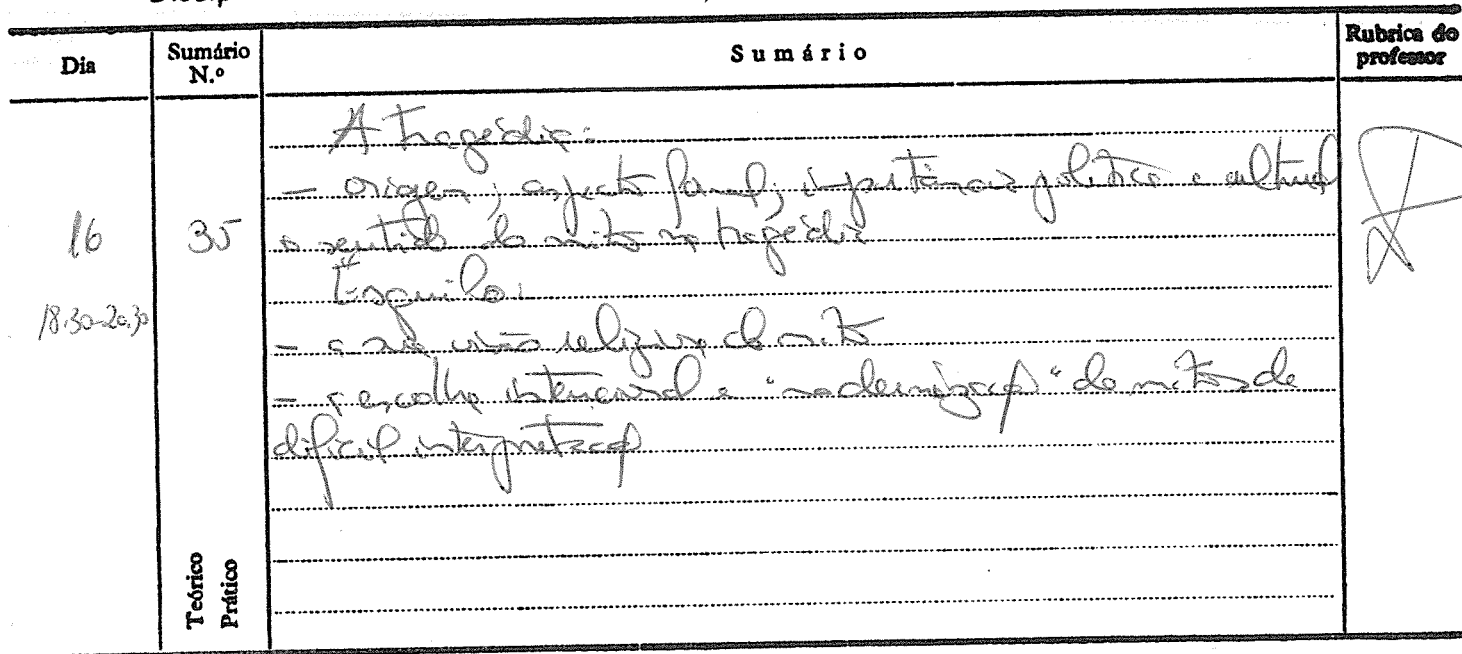 Dia
Sumário N.º
Sumário
Rubrica do professor
16
18.30-20.30
35
A tragédia:
- origem; aspecto formal; importância política e cultural
o sentido do mito na tragédia
Ésquilo:
- a sua visão religiosa do mito
- a escolha intencional e "modernização" de mitos de
difícil interpretação
Teórico
Prático